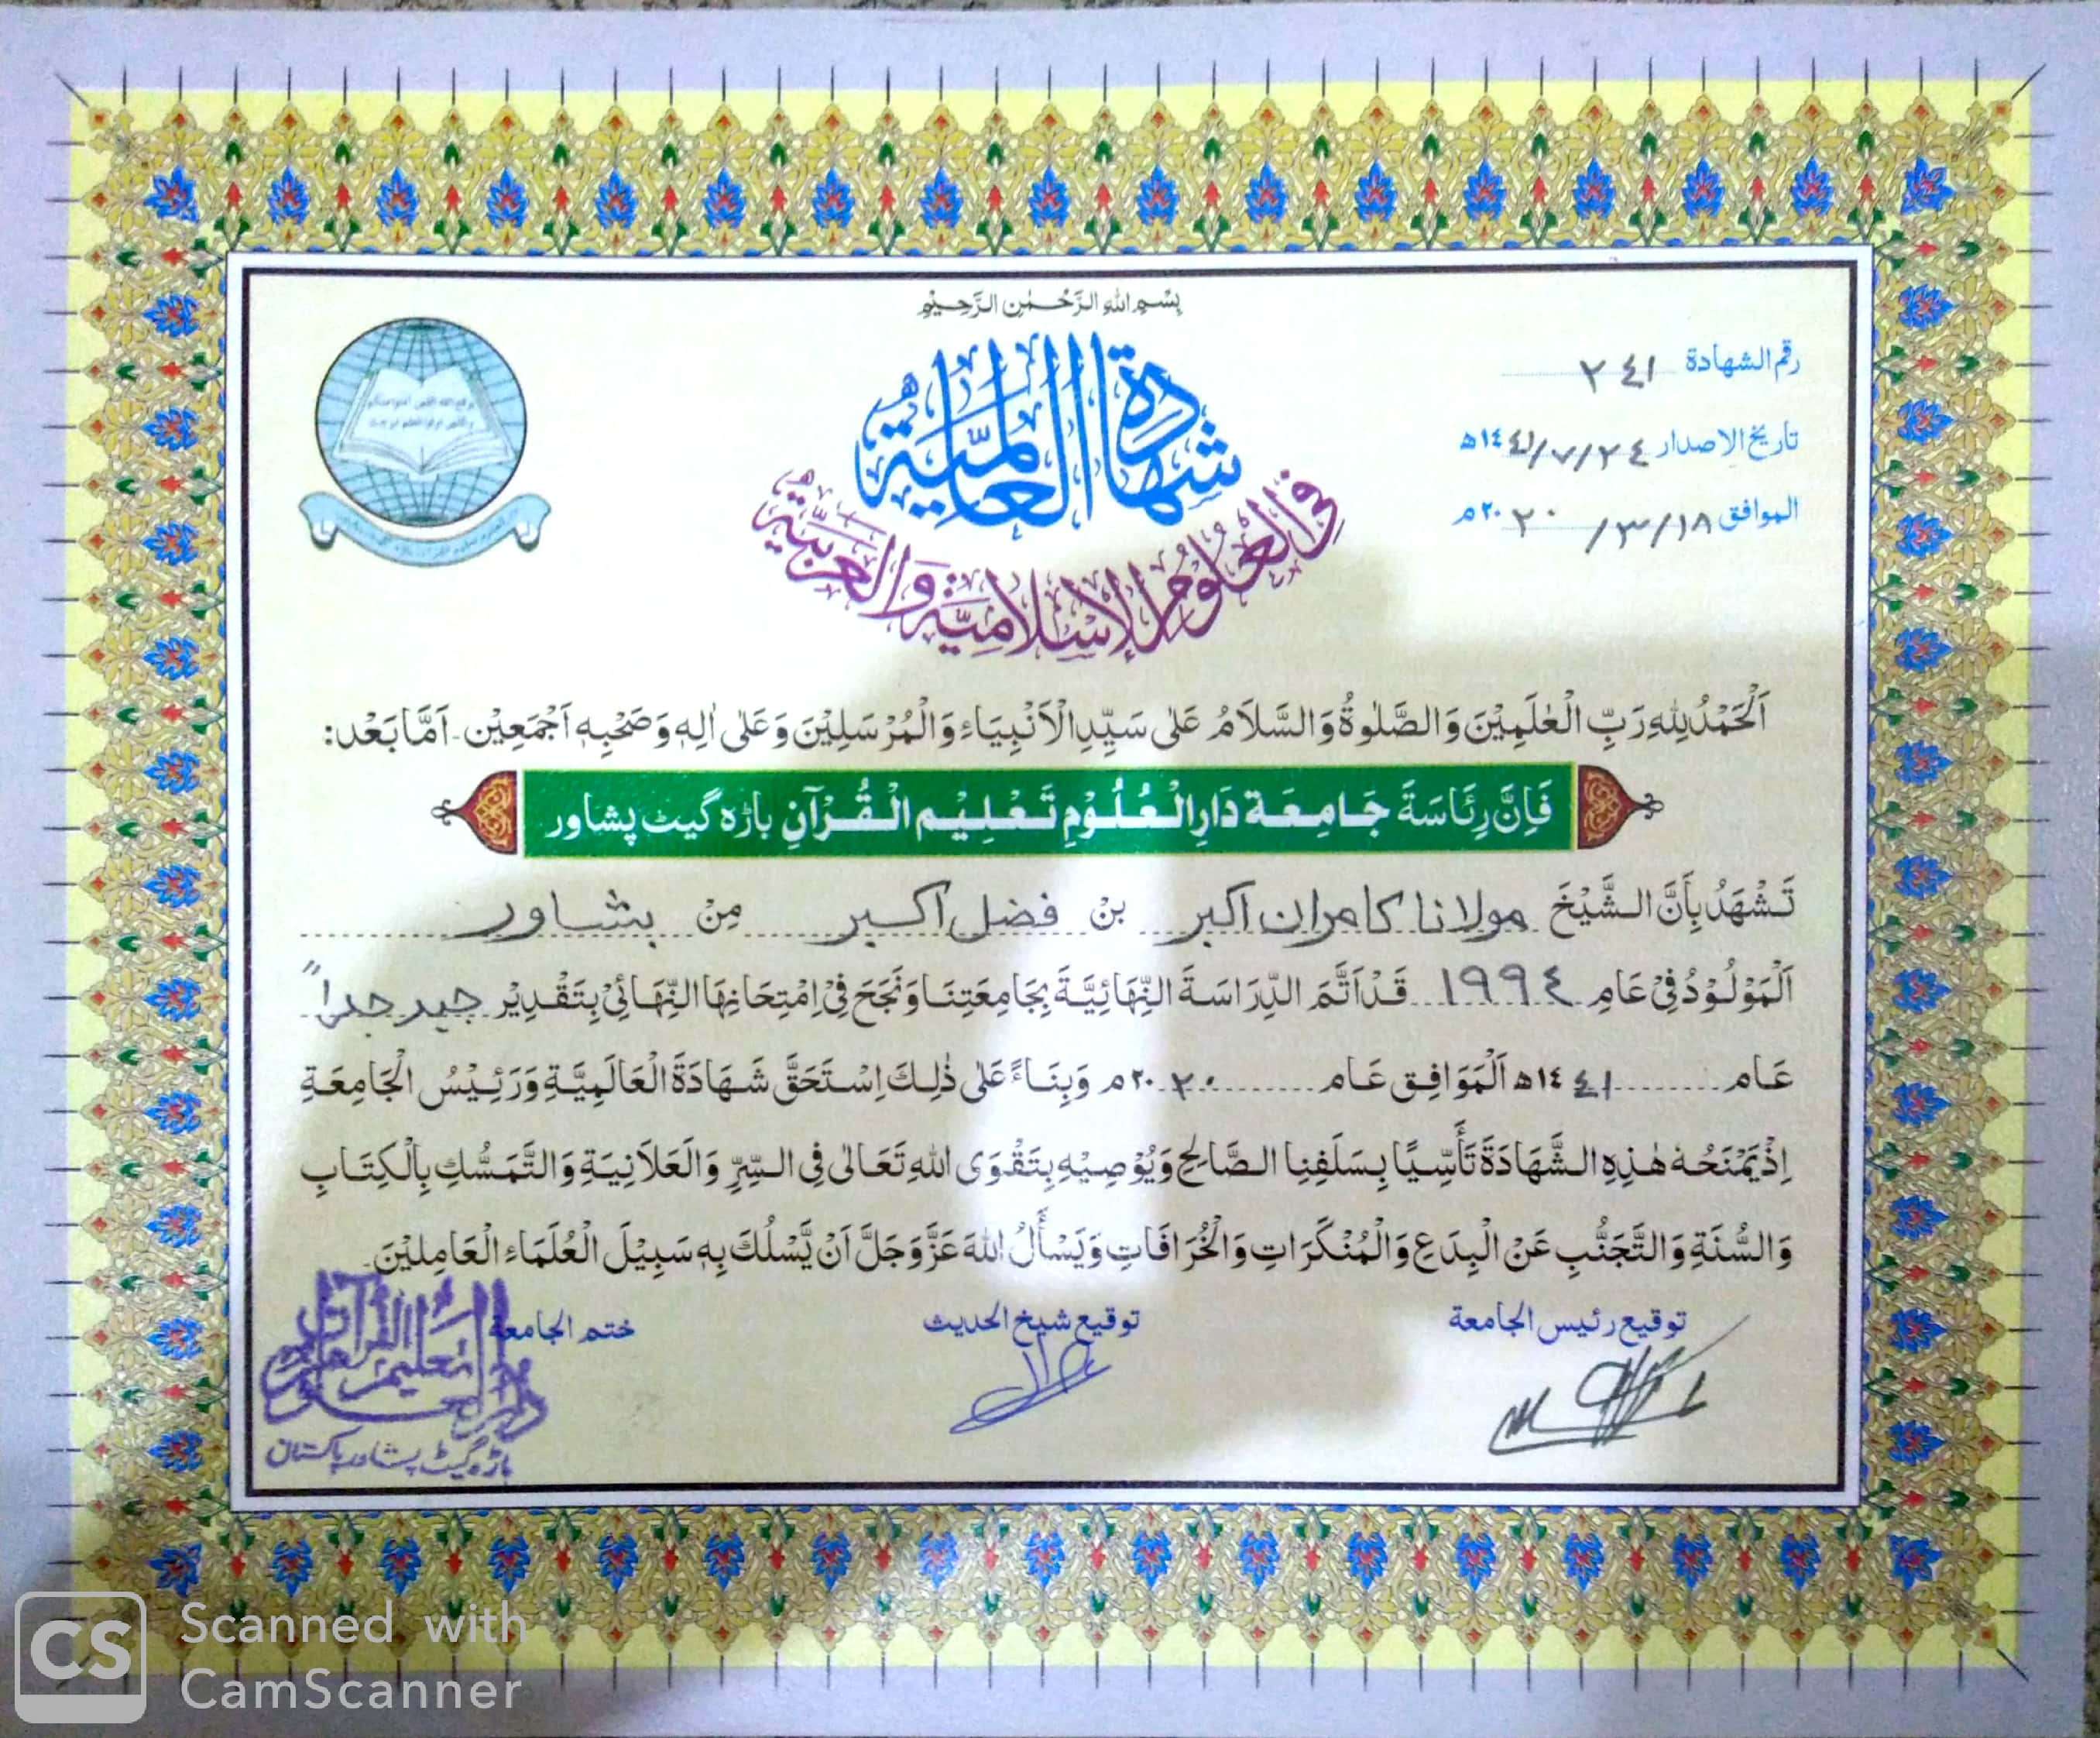 بِسْمِ اللهِ الرَّحْمٰنِ الرَّحِيْمِ
رقم الشهادة ٢٤١
تاريخ الاصدار ٢٤/٧/١٤٤١ھ
الموافق ١٨/٣/٢٠٢٠م
شهادة العالمية
في العلوم الإسلامية والعربية
اَلْحَمْدُ لِلهِ رَبِّ الْعٰلَمِيْنَ وَالصَّلٰوةُ وَالسَّلَامُ عَلٰى سَيِّدِ الْاَنْبِيَاءِ وَالْمُرْسَلِيْنَ وَعَلٰى اٰلِهٖ وَصَحْبِهٖ اَجْمَعِيْن۔ اَمَّا بَعْد:
فَاِنَّ رِئَاسَةَ جَامِعَة دَارِ الْعُلُوْمِ تَعْلِيْم الْقُرْآنِ باڑہ گیٹ پشاور
تَشْهَدُ بِأَنَّ الشَّيْخَ مولانا کامران اکبر بن فضل اکبر مِنْ پشاور
اَلْمَوْلُوْدُ فِيْ عَامِ ١٩٩٤ قَدْ اَتَّمَ الدِّرَاسَةَ النِّهَائِيَّةَ بِجَامِعَتِنَا وَنَجَحَ فِيْ اِمْتِحَانِهَا النِّهَائِيْ بِتَقْدِيْر جيد جداً
عَام ١٤٤١ھ اَلْمَوَافِق عَام ٢٠٢٠م وَبِنَاءً عَلٰى ذٰلِكَ اِسْتَحَقَّ شَهَادَةَ الْعَالَمِيَّةِ وَرَئِيْسُ الْجَامِعَةِ
اِذْ يَمْنَحُهُ هٰذِهِ الشَّهَادَةَ تَأَسِّيًا بِسَلَفِنَا الصَّالِحِ وَيُوْصِيْهِ بِتَقْوَى اللهِ تَعَالٰى فِي السِّرِّ وَالْعَلَانِيَةِ وَالتَّمَسُّكِ بِالْكِتَابِ
وَالسُّنَةِ وَالتَّجَنُّبِ عَنْ الْبِدَعِ وَالْمُنْكَرَاتِ وَالْخُرَافَاتِ وَيَسْأَلُ اللهَ عَزَّوَجَلَّ اَنْ يَّسْلُكَ بِهٖ سَبِيْلَ الْعُلَمَاءِ الْعَامِلِيْنَ۔
توقيع رئيس الجامعة توقيع شيخ الحديث ختم الجامعة
دار العلوم تعليم القرآن
باڑہ گیٹ پشاور پاکستان
CS Scanned with
CamScanner